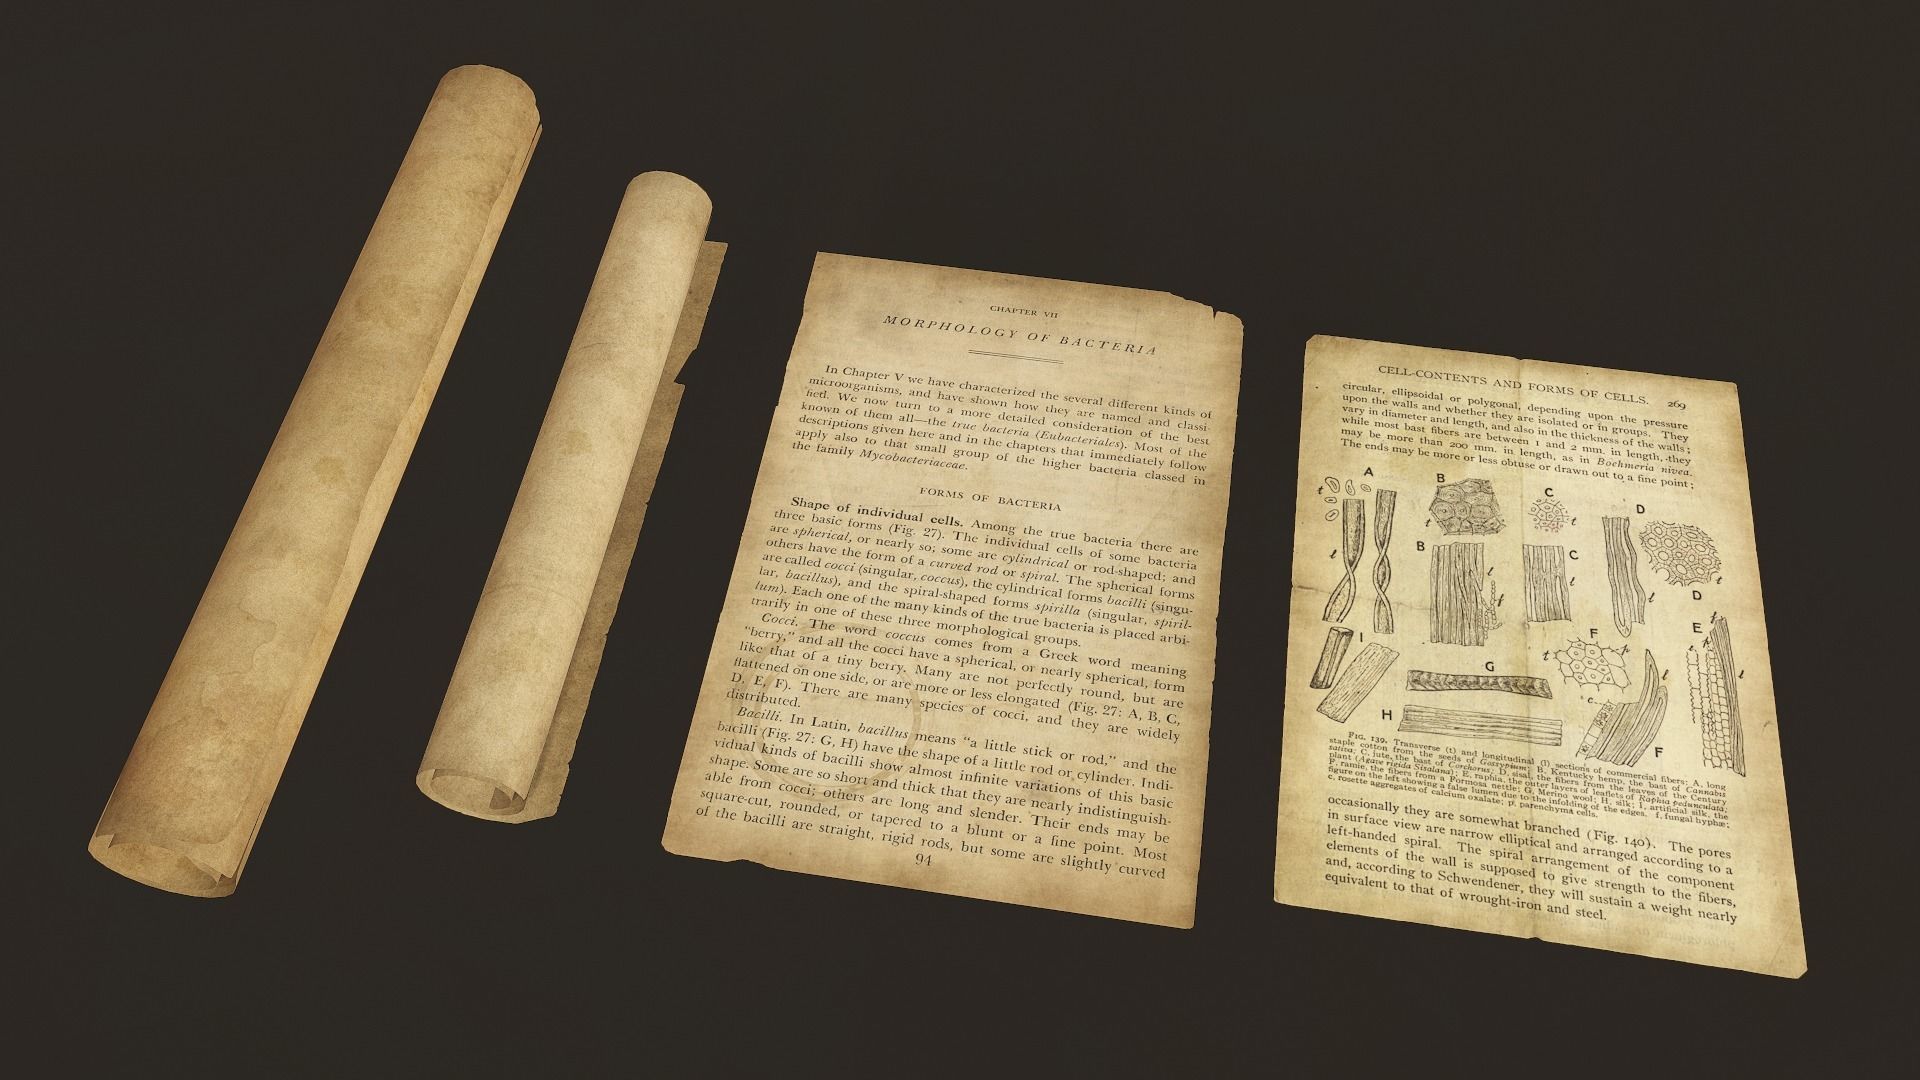 CHAPTER VII
MORPHOLOGY OF BACTERIA
In Chapter V we have characterized the several different kinds of
microorganisms, and have shown how they are named and classi-
fied. We now turn to a more detailed consideration of the best
known of them all—the true bacteria (Eubacteriales). Most of the
descriptions given here and in the chapters that immediately follow
apply also to that small group of the higher bacteria classed in
the family Mycobacteriaceae.
FORMS OF BACTERIA
Shape of individual cells. Among the true bacteria there are
three basic forms (Fig. 27). The individual cells of some bacteria
are spherical, or nearly so; some are cylindrical or rod-shaped; and
others have the form of a curved rod or spiral. The spherical forms
are called cocci (singular, coccus), the cylindrical forms bacilli (singu-
lar, bacillus), and the spiral-shaped forms spirilla (singular, spiril-
lum). Each one of the many kinds of the true bacteria is placed arbi-
trarily in one of these three morphological groups.
Cocci. The word coccus comes from a Greek word meaning
"berry," and all the cocci have a spherical, or nearly spherical, form
like that of a tiny berry. Many are not perfectly round, but are
flattened on one side, or are more or less elongated (Fig. 27: A, B, C,
D, E, F). There are many species of cocci, and they are widely
distributed.
Bacilli. In Latin, bacillus means "a little stick or rod," and the
bacilli (Fig. 27: G, H) have the shape of a little rod or cylinder. Indi-
vidual kinds of bacilli show almost infinite variations of this basic
shape. Some are so short and thick that they are nearly indistinguish-
able from cocci; others are long and slender. Their ends may be
square-cut, rounded, or tapered to a blunt or a fine point. Most
of the bacilli are straight, rigid rods, but some are slightly curved
94
CELL-CONTENTS AND FORMS OF CELLS. 269
circular, ellipsoidal or polygonal, depending upon the pressure
upon the walls and whether they are isolated or in groups. They
vary in diameter and length, and also in the thickness of the walls;
while most bast fibers are between 1 and 2 mm. in length, they
may be more than 200 mm. in length, as in Boehmeria nivea.
The ends may be more or less obtuse or drawn out to a fine point;
A
B
C
D
t
t
t
t
B
C
D
l
l
l
l
f
E
t
l
I
F
t
p
G
c
H
F
Fig. 139. Transverse (t) and longitudinal (l) sections of commercial fibers: A, long
staple cotton from the seeds of Gossypium; B, Kentucky hemp, the bast of Cannabis
sativa; C, jute, the bast of Corchorus; D, sisal, the fibers from the leaves of the Century
plant (Agave rigida Sisalana); E, raphia, the outer layers of leaflets of Raphia pedunculata;
F, ramie, the fibers from a Formosan nettle; G, Merino wool; H, silk; I, artificial silk, the
figure on the left showing a false lumen due to the infolding of the edges. f, fungal hyphæ;
c, rosette aggregates of calcium oxalate; p, parenchyma cells.
occasionally they are somewhat branched (Fig. 140). The pores
in surface view are narrow elliptical and arranged according to a
left-handed spiral. The spiral arrangement of the component
elements of the wall is supposed to give strength to the fibers,
and, according to Schwendener, they will sustain a weight nearly
equivalent to that of wrought-iron and steel.